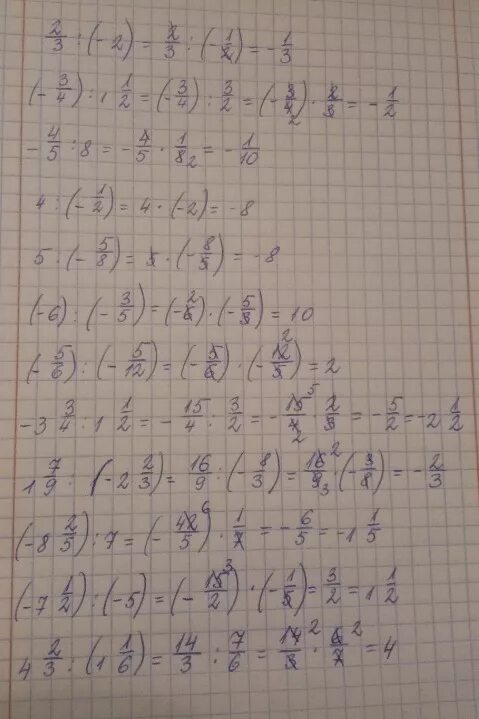 2/3 : (-2) = 2/3 : (-1/2) = -1/3
(-3/4) : 1 1/2 = (-3/4) : 3/2 = (-3/4 2) · 2/3 = -1/2
-4/5 : 8 = -4/5 · 1/8 2 = -1/10
4 : (-1/2) = 4 · (-2) = -8
5 : (-5/8) = 5 · (-8/5) = -8
(-6) : (-3/5) = (-6 2) · (-5/3) = 10
(-5/6) : (-5/12) = (-5/6) · (-12 2/5) = 2
-3 3/4 : 1 1/2 = -15/4 : 3/2 = -15 5/4 2 · 2/3 = -5/2 = -2 1/2
1 7/9 : (-2 2/3) = 16/9 : (-8/3) = 16 2/9 3 · (-3/8) = -2/3
(-8 2/5) : 7 = (-42 6/5) · 1/7 = -6/5 = -1 1/5
(-7 1/2) : (-5) = (-15 3/2) · (-1/5) = 3/2 = 1 1/2
4 2/3 : (1 1/6) = 14/3 : 7/6 = 14 2/3 · 6 2/7 = 4